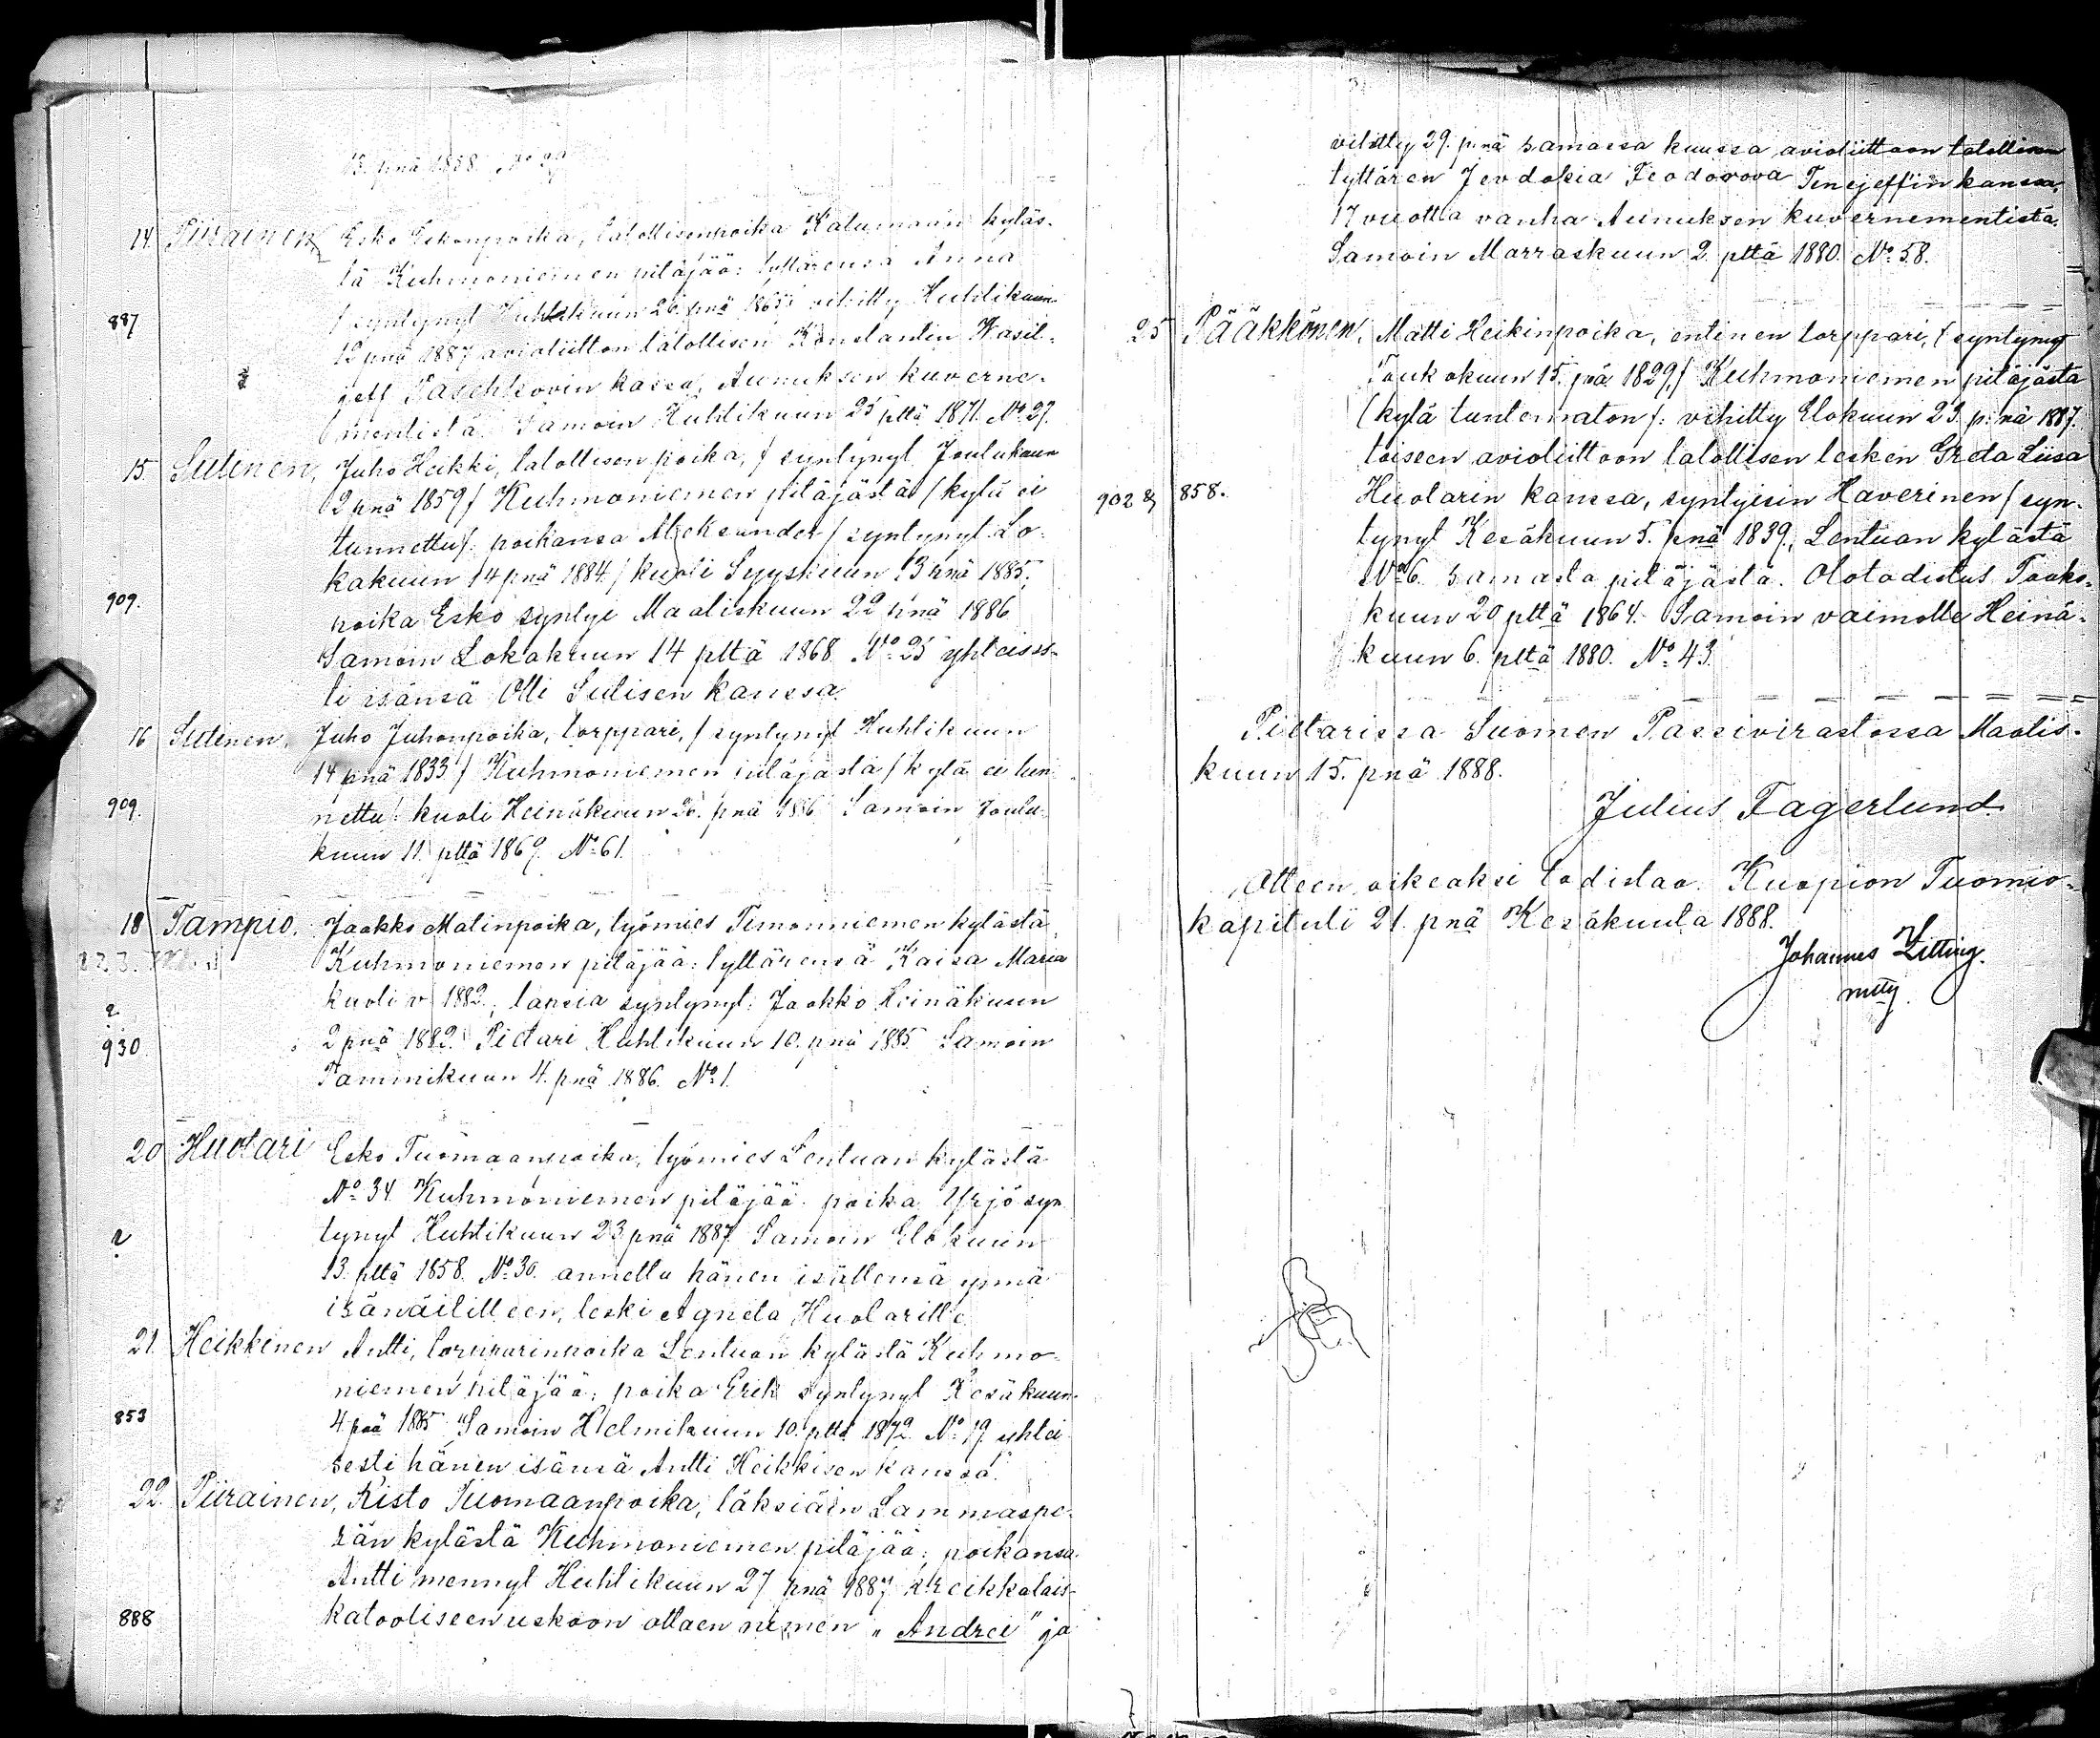 13. pnä 1858. No 29
14. Piirainen, Esko Eskonpoika, talollisenpoika Katermann kyläs-
tä Kuhmoniemen pitäjää: tyttärensä Anna
/ syntynyt Huhtikuun 26. pnä 1865 / vihitty Huhtikuun
887
12 pnä 1887 avioliitton talollisen Konstantin Wasil-
jeff Paschkovin kassa, Aunuksen kuverne-
mentistä. Samoin Huhtikuun 25 pltä 1871. No 27.
15. Sutinen, Juho Heikki, talollisen poika, / syntynyt Joulukuun
12 pnä 1859 / Kuhmoniemen pitäjästä / kylä ei
tunnettu /: poikansa Aleksander / syntynyt Lo-
kakuun 14 pnä 1884 / kuoli Syyskuun 13 pnä 1885;
909.
poika Esko syntyi Maaliskuun 22 pnä 1886
Samoin Lokakuun 14 pltä 1868 No 25 yhteises-
ti isänsä Olli Sutisen kanssa.
16 Sutinen, Juho Juhonpoika, torppari, / syntynyt Huhtikuun
14 pnä 1833 / Kuhmoniemen pitäjästä / kylä ei tun-
909.
nettu / kuoli Heinäkuun 26. pnä 1886 Samoin Joulu-
kuun 11. pltä 1869. No 61.
18 Tampio. Jaakko Matinpoika, työmies Timonniemen kylästä,
Kuhmoniemen pitäjää: tyttärensä Kaisa Maria
kuoli v. 1882, lapsia syntynyt: Jaakko Heinäkuun
930
2 pnä 1882. Pietari Huhtikuun 10. pnä 1885 Samoin
Tammikuun 4. pnä 1886. No 1.
20 Huotari Esko Tuomaanpoika, työmies Lentuan kylästä
No 34. Kuhmoniemen pitäjää. poika Yrjö syn-
tynyt Huhtikuun 23 pnä 1887 Samoin Elokuun
13. pltä 1858. No 30. annettu hänen isällensä ynnä
isänäitilleen, leski Agneta Huotarille.
21. Heikkinen Antti, torpparinpoika Lentuan kylästä Kuhmo-
niemen pitäjää; poika Erik syntynyt Kesäkuun
853
4 pnä 1885 Samoin Helmikuun 10. pltä 1872. No 19. yhtei-
sesti hänen isänsä Antti Heikkisen kanssa.
22. Piirainen, Risto Tuomaanpoika, läksiäin Lammaspe-
rän kylästä Kuhmoniemen pitäjää; poikansa
Antti mennyt Huhtikuun 27 pnä 1887 kreikkalais-
888
katooliseen uskoon ottaen nimen "Andrei" ja
vihitty 29. p:nä samassa kuussa avioliittoon talollisen
tyttären Jevdokia Feodorova Tinejeff'in kanssa,
17 vuotta vanha Aunuksen kuvernementista.
Samoin Marraskuun 2. pltä 1880. No 58.
25 Pääkkönen, Matti Heikinpoika, entinen torppari, / syntynyt
Toukokuun 15. pnä 1829, / Kuhmoniemen pitäjästä
/ kylä tuntematon /: vihitty Elokuun 23. p:nä 1887.
toiseen avioliittoon talollisen lesken Greta Liisa
902 & 858.
Huotarin kanssa, syntyisin Haverinen / syn-
tynyt Kesäkuun 5. pnä 1839, Lentuan kylästä
No 6. samasta pitäjästä. Olotodistus Touko-
kuun 20 pltä 1864. Samoin vaimolle Heinä-
kuun 6. pltä 1880. No 43.
Pietarissa Suomen Passivirastossa Maalis-
kuun 15. pnä 1888.
Julius Fagerlund.
Otteen oikeaksi todistaa. Kuopion Tuomio-
kapituli 21. pnä Kesäkuuta 1888.
Johannes Zitting.